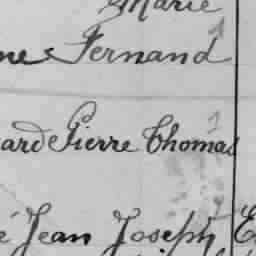 Marie
ne Fernand 1
ard Pierre Thomas 1
é Jean Joseph E